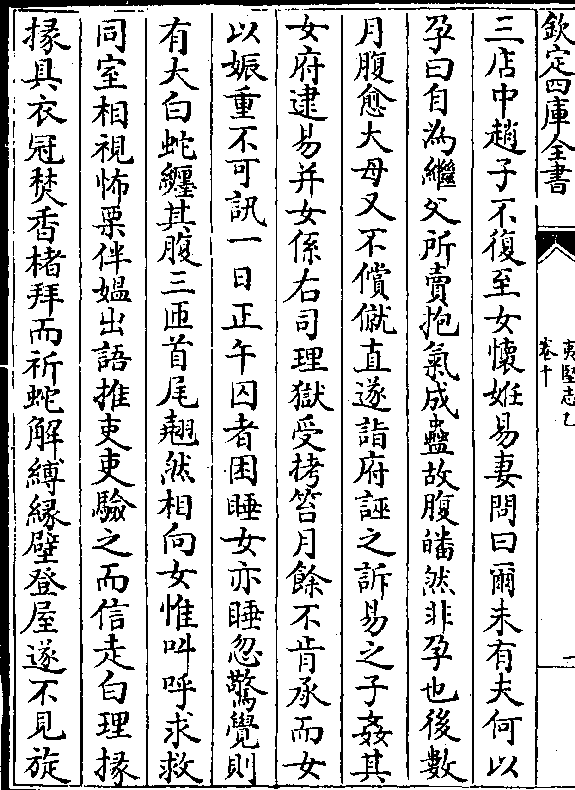 欽定四庫全書
夷堅志乙
卷十
一
三店中趙子不復至女懷姙易妻問曰爾未有夫何以
孕曰自為繼父所賣抱氣成蠱故腹皤然非孕也後數
月腹愈大母又不償僦直遂詣府誣之訴易之子姦其
女府逮易并女係右司理獄受拷笞月餘不肯承而女
以娠重不可訊一日正午囚者困睡女亦睡忽驚覺則
有大白蛇纏其腹三匝首尾翹然相向女惟叫呼求救
同室相視怖栗伴媪出語推吏吏驗之而信走白理掾
掾具衣冠焚香楮拜而祈蛇解縛縁壁登屋遂不見旋